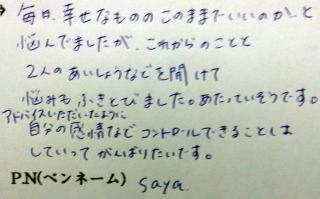 毎日、幸せなもののこのままでいいのか、と
悩んでましたが、これからのことと
2人のあいしょうなどを聞けて
悩みもふきとびました。あたっていそうです。
アドバイスいただいたように
自分の感情などコントロールできることは
していってがんばりたいです。
P.N(ペンネーム) saya.